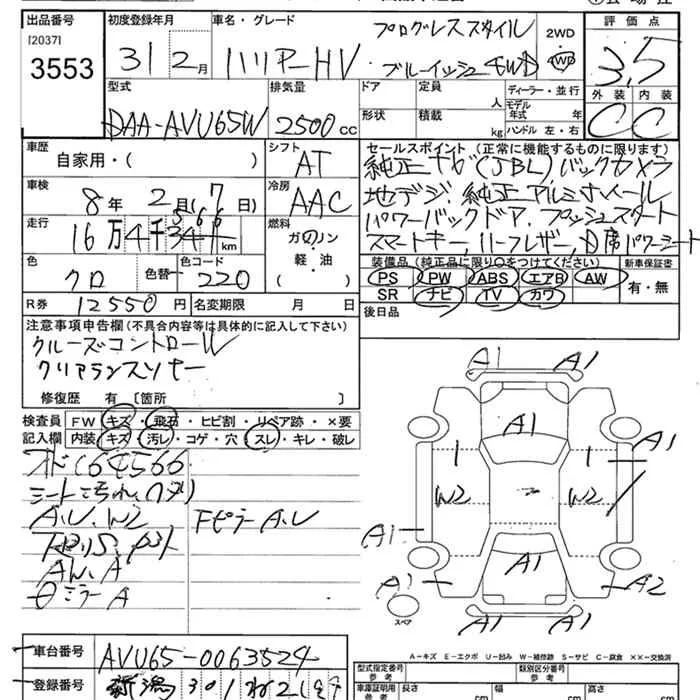 出品番号 初度登録年月 車名・グレード 評価点
[2037]
3553
31 2月
ハリアーHV
プログレススタイル
ブルーイッシュ 4WD
2WD
4WD
3.5
外装 内装
C C
型式 排気量 ドア 定員 人 ディーラー・並行
形状 積載 kg モデル年式 年
ハンドル 左・右
DAA-AVU65W 2500cc
車歴 シフト
自家用・( ) AT
車検 冷房
8年 2月(7日) AAC
走行 燃料
16万4千 km ガソリン
軽・油
( )
色 色替 色コード
クロ 220
セールスポイント(正常に機能するものに限ります)
純正ナビ(JBL)バックカメラ
地デジ.純正アルミホイール
パワーバックドア.プッシュスタート
スマートキー,ハーフレザー,D席パワーシート
装備品(純正品に限り○をつけてください) 新車保証書
PS PW ABS エアB AW 有・無
SR ナビ TV カワ
後日品
R券 12550円 名変期限 月 日
注意事項申告欄(不具合内容等は具体的に記入して下さい)
クルーズコントロール
クリアランスソナー
修復歴 有 [箇所
検査員記入欄
FW キズ・飛石・ヒビ割・リペア跡・×要
内装 キズ・汚レ・コゲ・穴・スレ・キレ・破レ
164566
A.U.W2 Fピラー A.U
AW.A
ミラーA
A1 A1
A1
1 1 A1
W2 W2
A1
A1 A1 A2
A1 A1
スペア
A-キズ E-エクボ U-凹み W-補修跡 S-サビ C-腐食 ××-交換済
車台番号 AVU65-0063524
登録番号 新潟 301
型式指定番号 参考 類別区分番号 参考
車庫証明用 参考 長さ cm 幅 cm 高さ cm